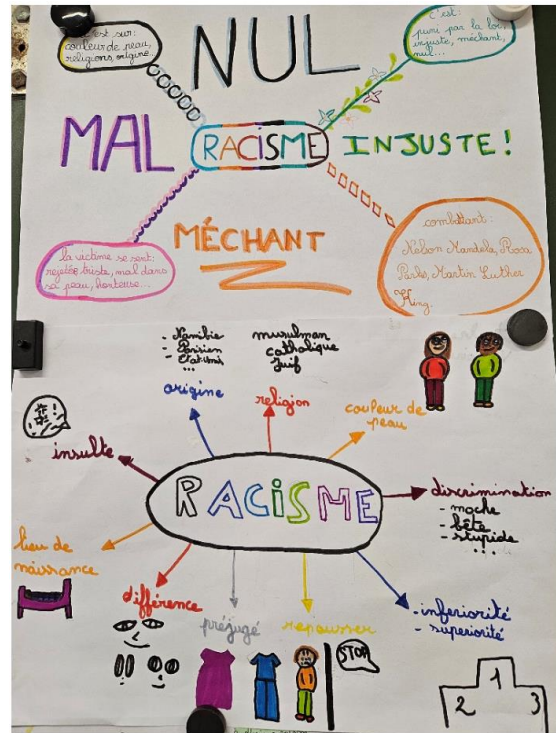 C'est sur:
couleur de peau,
religions, origine...
NUL
C'est:
puni par la loi,
injuste, méchant,
nul...
MAL
RACISME
INJUSTE!
la victime se sent:
rejetée triste, mal dans
sa peau, honteuse...
MÉCHANT
combattant:
Nelson Mandela, Rosa
Parks, Martin Luther
King.
- Namibie
- Parisien
- Etat-Unis
...
origine
musulman
catholique
Juif
religion
couleur de
peau
insulte
RACISME
discrimination
- moche
- bête
- stupide
...
lieu de
naissance
différence
préjugé
repousser
- inferiorité
- superiorité
STOP
1
2
3